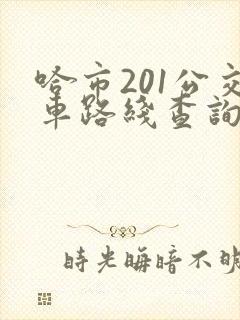 哈市201公交
車路綫查詢
時光晦暗不明